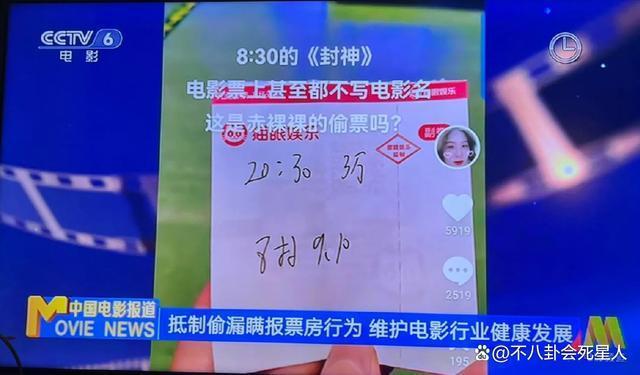 CCTV 6
电影
8:30的《封神》
电影票上甚至都不写电影名
这是赤裸裸的偷票吗?
猫眼娱乐
副
20:30
9.10
5919
2519
195
M 中国电影报道
MOVIE NEWS
抵制偷漏瞒报票房行为 维护电影行业健康发展
@不八卦会死星人